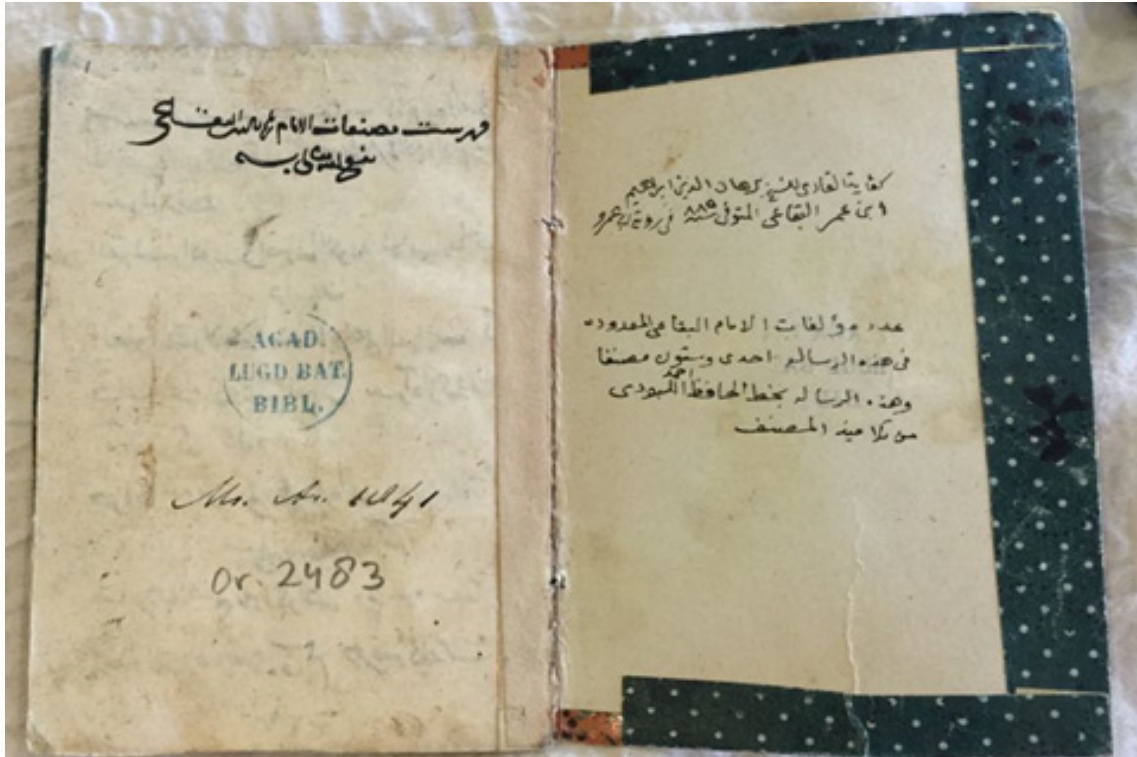 كفاية القاري للشيخ برهان الدين ابراهيم
ابن عمر البقاعي المتوفى سنة ٨٨٥ في رواية ابي عمرو
عدد مؤلفات الامام البقاعي المعدودة
في هذه الرسالة احدى وستون مصنفا
وهذه الرسالة بخط الحافظ احمد
من تلاميذ المصنف
فهرست مصنفات الامام البقاعي
ACAD.
LUGD BAT.
BIBL.
Or. 2483